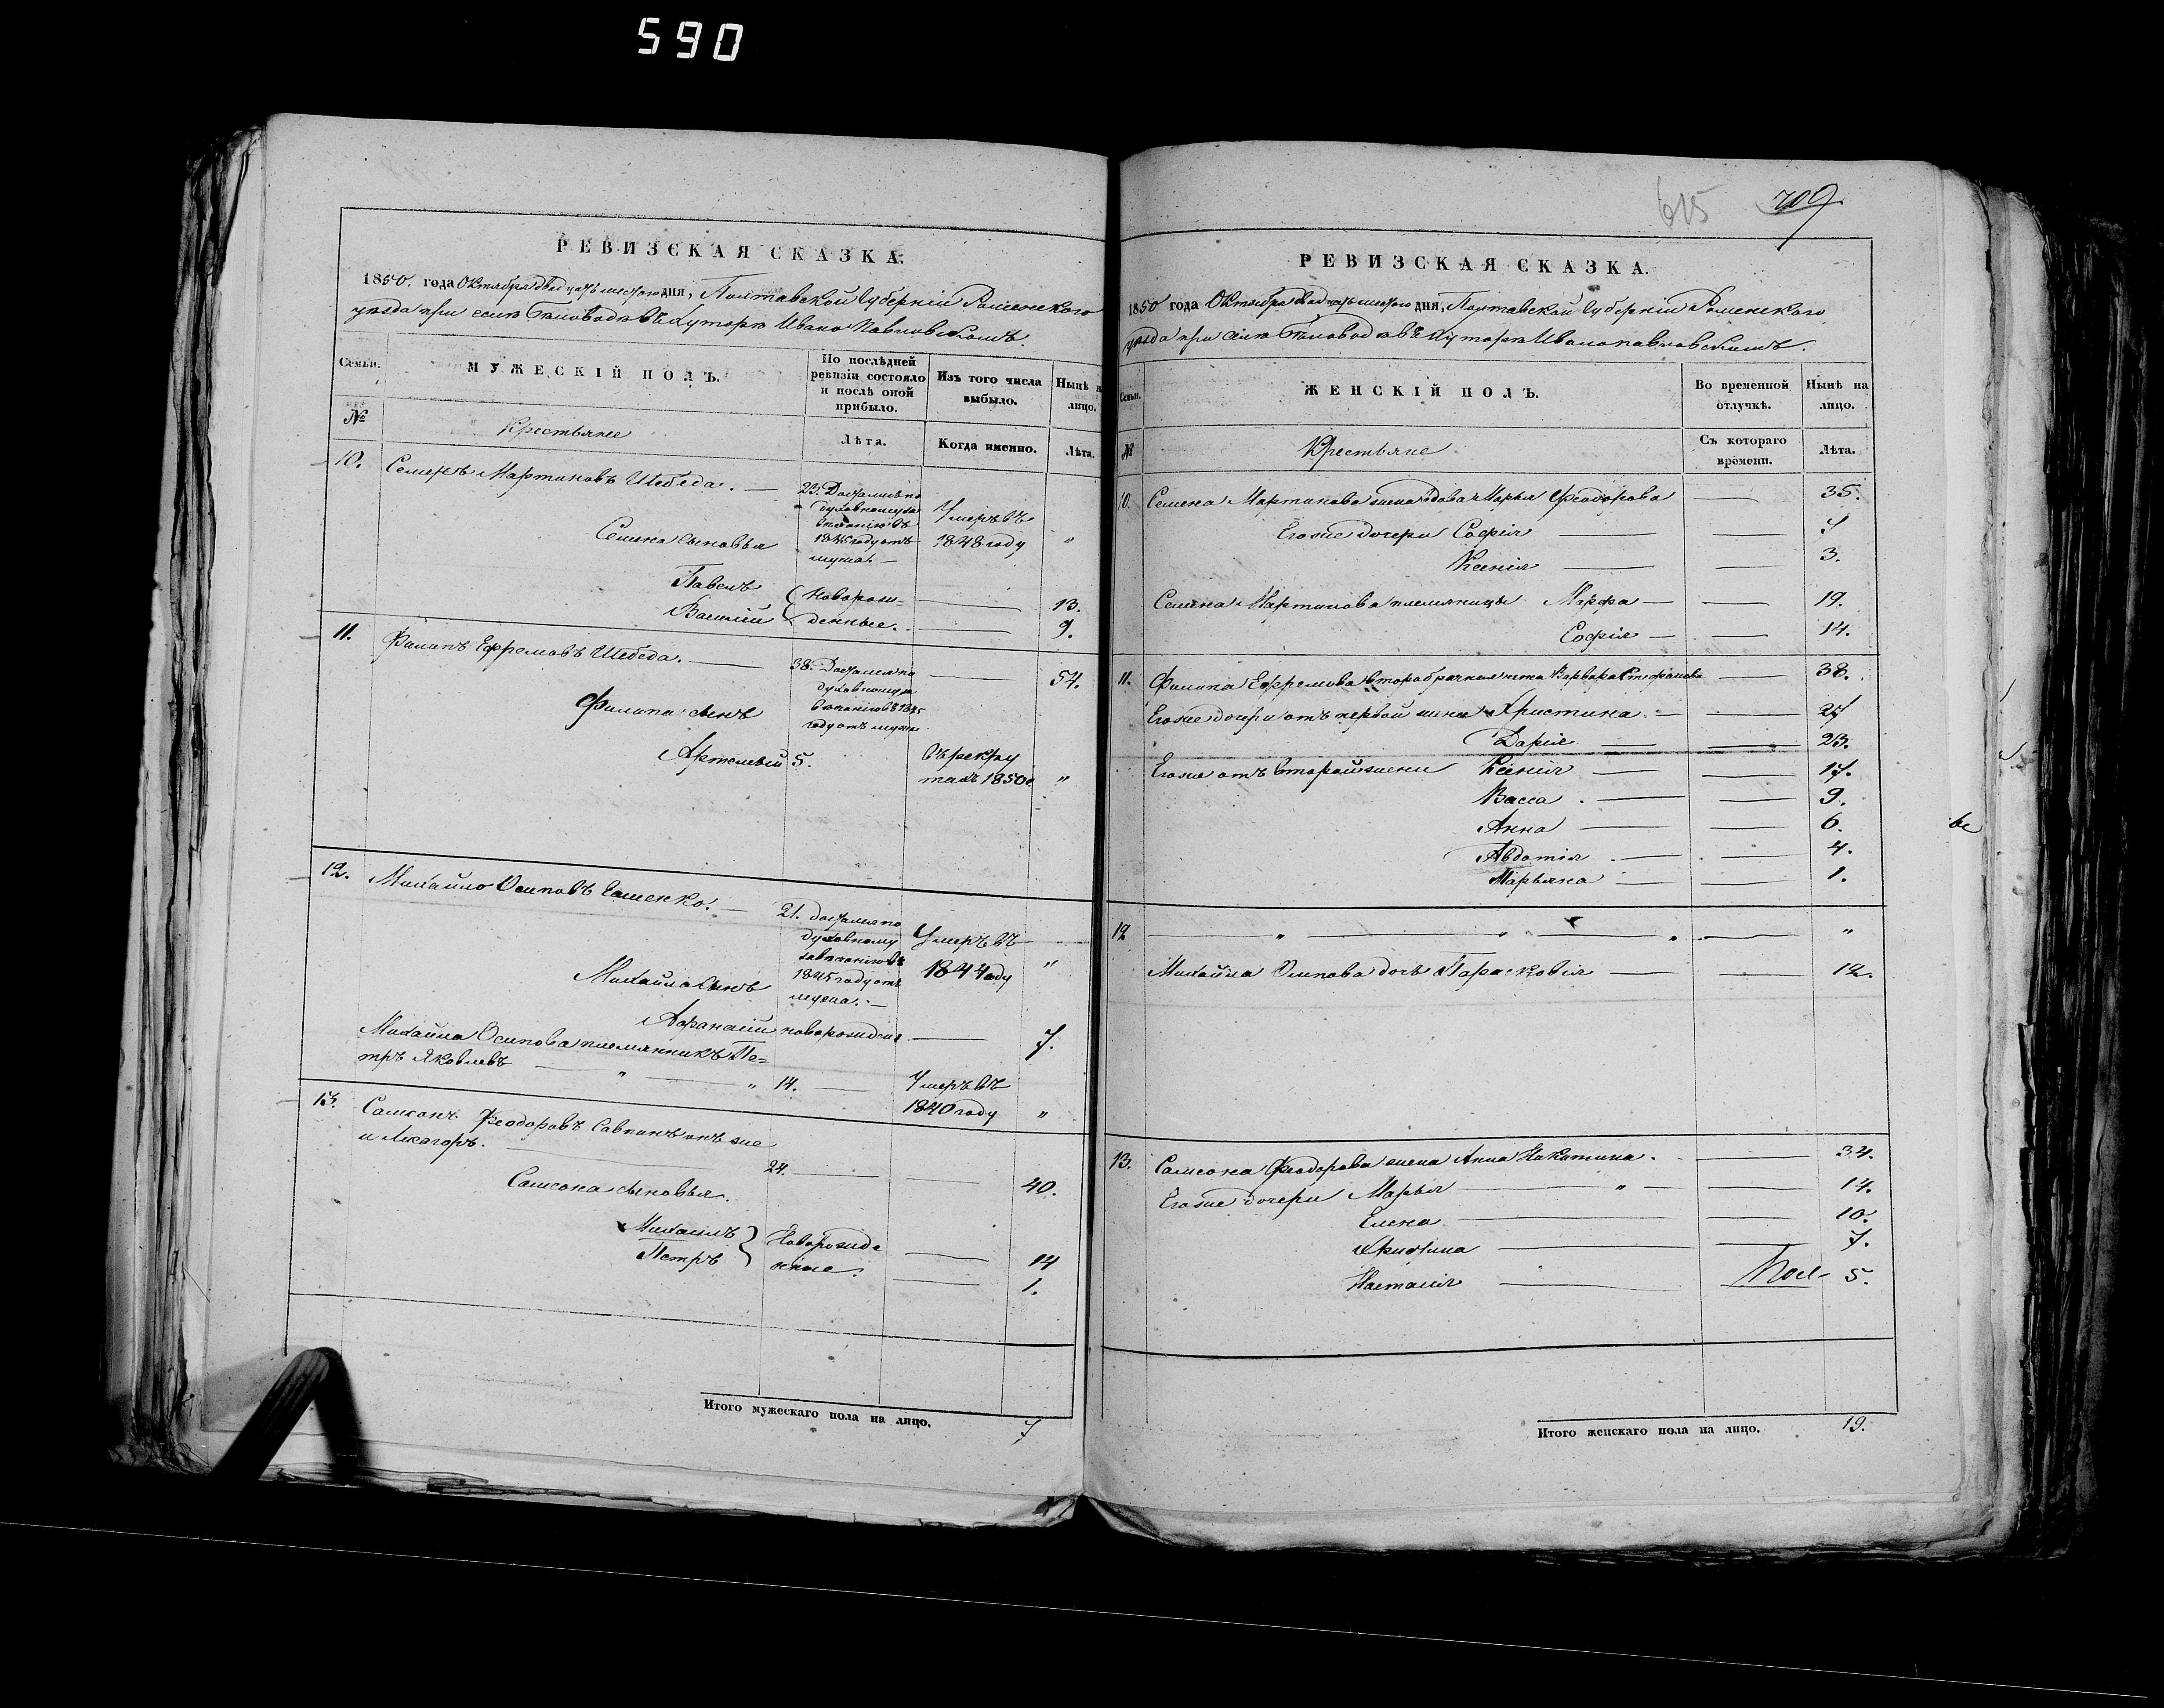 590
РЕВИЗСКАЯ СКАЗКА.
1850. года Октября двадцать шестого дня, Полтавской Губерніи Роменского
уезда при селе Беловодахъ Хуторе Ивано Павловскомъ.
Семьи.
МУЖЕСКІЙ ПОЛЪ.
По послѣдней ревизіи состояло и послѣ оной прибыло.
Изъ того числа выбыло.
Нынѣ на лицо.
№
Крестьяне
Лѣта.
Когда именно.
Лѣта.
10. Семенъ Мартиновъ Шебеда. — 23. Достался по
духовному за
вещанію въ
1845 году отъ
мужа. —
Умеръ въ
1848 году "
Семена сыновья
Павелъ Новорож= 13.
Василій денные. 9.
11. Филипъ Ефремовъ Шебеда. — 38. Достался по
духовному за
вещанію въ 1845
году отъ мужа 54.
Филипа сынъ
Артемый 5. въ рекру
тахъ 1850 г "
12. Михайло Осиповъ Сашенко. — 21. достался по
духовному
завещанію въ
1845 году отъ
мужа. —
Умеръ въ
1844 году "
Михайла сынъ
Афанасій новорожден 7.
Михайла Осипова племянникъ Пе=
тръ Яковлевъ " " 14. — Умеръ въ
1840 году "
13. Самсонъ Феодоровъ Савпинъ онъ же
и Лисагоръ. 24. 40.
Самсона сыновья.
Михаилъ Новорожде 14
Петръ нные. 1.
Итого мужескаго пола на лицо. 7
615 709.
РЕВИЗСКАЯ СКАЗКА.
1850 года Октября двадцать шестого дня, Полтавской Губерніи Роменского
уезда при селе Беловодахъ Хуторе Иванопавловскимъ.
Семьи.
ЖЕНСКІЙ ПОЛЪ.
Во временной отлучкѣ.
Нынѣ на лицо.
№
Крестьяне
Съ котораго времени.
Лѣта.
10. Семена Мартинова жена вдова Марья Феодорова — 35.
Егоже дочери Софія — 7
Ксенія — 3.
Семена Мартинова племяницы Марфа — 19.
Софія — 14.
11. Филипа Ефремова второбрачная жена Варвара Стефанова — 38.
Егоже дочери отъ первой жены Христина — 27
Дарія — 23.
Егоже отъ второй жены Ксенія — 17.
Васса — 9.
Анна — 6.
Авдотія — 4.
Марьяна — 1.
12 " " " "
Михайла Осипова дочь Парасковія — 12.
13. Самсона Феодорова жена Анна Никитина. — 34.
Егоже дочери Марья " — 14.
Елена — 10.
Христина — 7.
Настасія — 5.
Итого женскаго пола на лицо. 19.